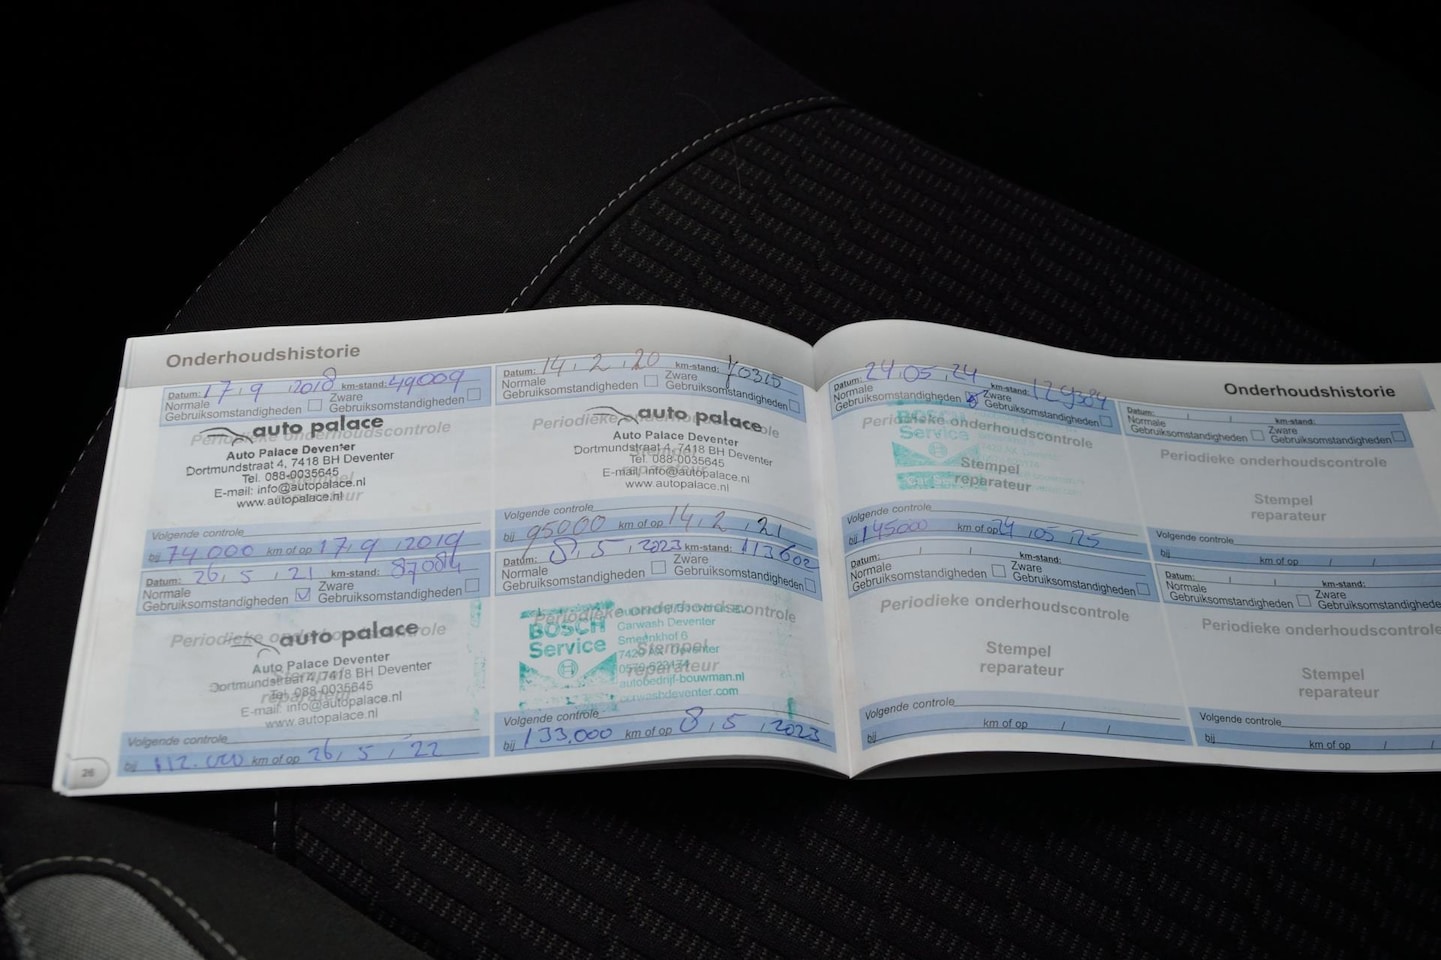 Onderhoudshistorie
Datum: 17, 9, 2018 km-stand: 49009
Normale Gebruiksomstandigheden
Zware Gebruiksomstandigheden
Periodieke onderhoudscontrole
auto palace
Auto Palace Deventer
Dortmundstraat 4, 7418 BH Deventer
Tel. 088-0035645
E-mail: info@autopalace.nl
www.autopalace.nl
Volgende controle
bij 74000 km of op 17, 9, 2019
Datum: 14, 2, 20 km-stand: 70315
Normale Gebruiksomstandigheden
Zware Gebruiksomstandigheden
Periodieke onderhoudscontrole
auto palace
Auto Palace Deventer
Dortmundstraat 4, 7418 BH Deventer
Tel. 088-0035645
E-mail: info@autopalace.nl
www.autopalace.nl
Volgende controle
bij 95000 km of op 14, 2, 21
Datum: 26, 5, 21 km-stand:
Normale Gebruiksomstandigheden
Zware Gebruiksomstandigheden
Periodieke onderhoudscontrole
auto palace
Auto Palace Deventer
Dortmundstraat 4, 7418 BH Deventer
Tel. 088-0035645
E-mail: info@autopalace.nl
www.autopalace.nl
Volgende controle
bij 112.000 km of op 26, 5, 22
Datum: 8, 5, 2023 km-stand: 113602
Normale Gebruiksomstandigheden
Zware Gebruiksomstandigheden
Periodieke onderhoudscontrole
BOSCH
Service
Carwash Deventer
Smeenkhof 6
Deventer
Stempel
reparateur
autobedrijf-bouwman.nl
carwashdeventer.com
Volgende controle
bij 133.000 km of op 8, 5, 2023
26
Onderhoudshistorie
Datum: 24.05.24 km-stand:
Normale Gebruiksomstandigheden
Zware Gebruiksomstandigheden
Periodieke onderhoudscontrole
BOSCH
Service
Stempel
reparateur
Volgende controle
bij 145000 km of op 24, 05, 25
Datum: / / km-stand:
Normale Gebruiksomstandigheden
Zware Gebruiksomstandigheden
Periodieke onderhoudscontrole
Stempel
reparateur
Volgende controle
bij km of op / /
Datum: / / km-stand:
Normale Gebruiksomstandigheden
Zware Gebruiksomstandigheden
Periodieke onderhoudscontrole
Stempel
reparateur
Volgende controle
bij km of op / /
Datum: / / km-stand:
Normale Gebruiksomstandigheden
Zware Gebruiksomstandigheden
Periodieke onderhoudscontrole
Stempel
reparateur
Volgende controle
bij km of op / /